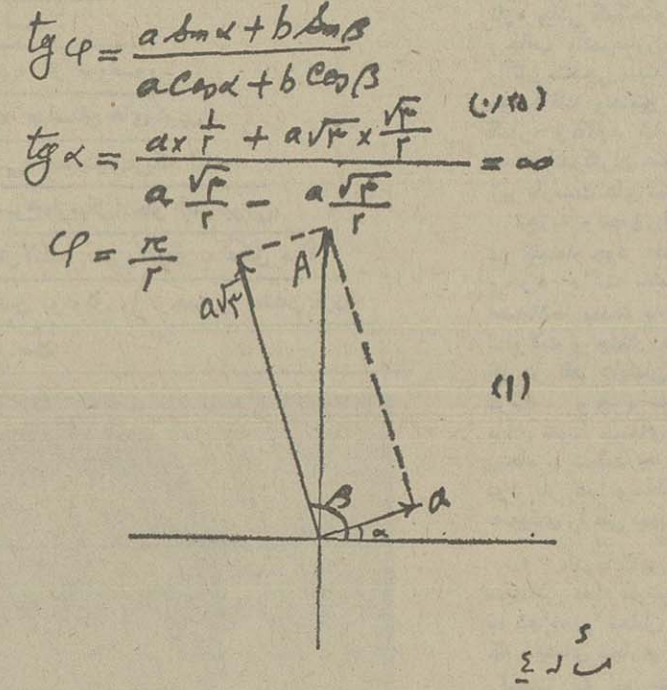 tg φ = (a Sin α + b Sin β) / (a Cos α + b Cos β)
(۰/۲۵)
tg α = (a × ۱/۲ + a√۳ × √۳/۲) / (a √۳/۲ − a √۳/۲) = ∞
φ = π/۲
A
a√۳
(۱)
β
a
α